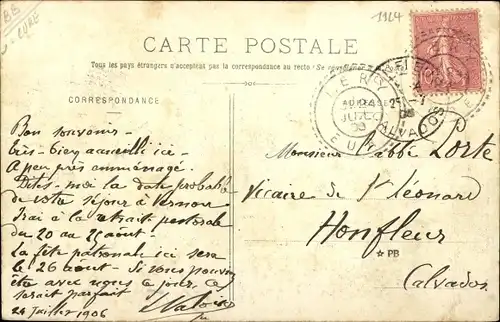 BB
CURE
1904
CARTE POSTALE
Tous les pays étrangers n'acceptent pas la correspondance au recto
CORRESPONDANCE
LERY
24
JUIL
EURE
CALVADOS
Bon souvenir -
très-bien accueilli ici -
A peu près emménagé.
Dites-moi la date probable
de votre séjour à Vernon
J'irai à la retraite pastorale
du 20 au 25 août -
La fête patronale ici sera
le 26 août - Si vous pouvez
être avec nous ce jour, ce
serait parfait
24 Juillet 1906
Monsieur l'abbé Lorte
Vicaire de St Léonard
Honfleur
☆ PB
Calvados